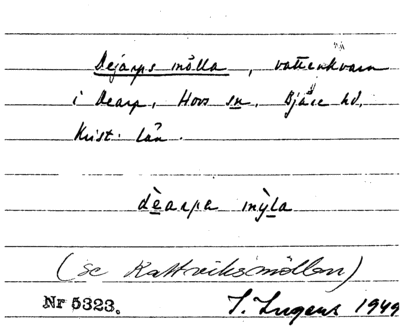 Dejarps mölla, vattenkvarn
i Dearp, Hovs sn, Bjäre hd,
Krist. län.
dèarpa mỳla
(se Kattviksmöllan)
Nr 5323. I. Ingers 1949